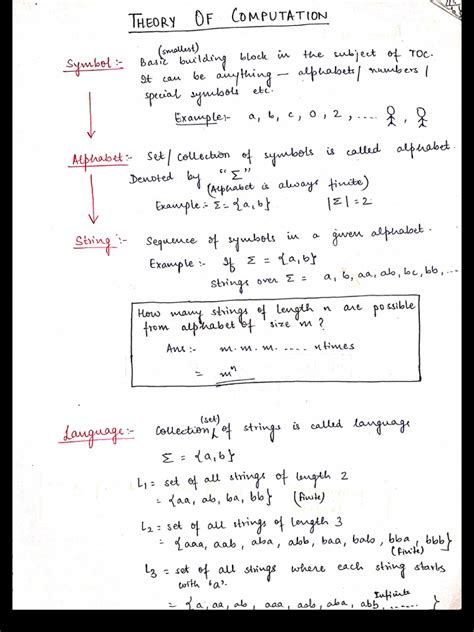 THEORY OF COMPUTATION
(smallest)
Symbol :- Basic building block in the subject of TOC.
It can be anything — alphabets / numbers /
special symbols etc.
Example:- a, b, c, 0, 2, ....
Alphabet:- Set/ Collection of symbols is called alphabet.
Denoted by "Σ"
(Alphabet is always finite)
Example:- Σ = {a, b} |Σ| = 2
String :- Sequence of symbols in a given alphabet.
Example :- If Σ = {a, b}
Strings over Σ = a, b, aa, ab, bc, bb, ...
How many strings of length n are possible
from alphabet of size m ?
Ans :- m. m. m. ..... n times
= mⁿ
(set)
Language:- Collection of strings is called language
Σ = {a, b}
L₁ = set of all strings of length 2
= {aa, ab, ba, bb} (finite)
L₂ = set of all strings of length 3
= {aaa, aab, aba, abb, baa, bab, bba, bbb}
(finite)
L₃ = set of all strings where each string starts
with 'a'.
Infinite
= {a, aa, ab, aaa, aab, aba, abb, ......}